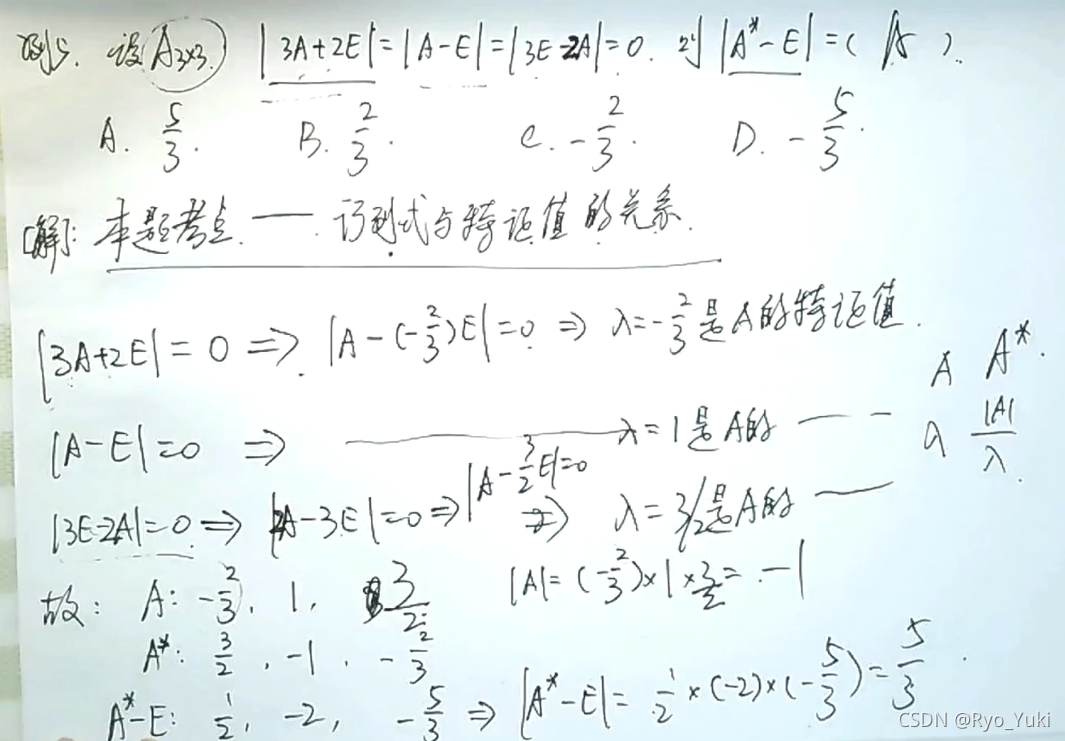 例5. 设A₃ₓ₃. |3A+2E|=|A-E|=|3E-2A|=0. 则|A*-E|=( A ).
A. 5/3. B. 2/3. C. -2/3. D. -5/3.
[解]: 本题考点 —— 行列式与特征值的关系.
|3A+2E|=0 ⇒ |A-(-2/3)E|=0 ⇒ λ=-2/3是A的特征值.
A A*.
|A-E|=0 ⇒ —— λ=1是A的 ——
λ |A|/λ.
|3E-2A|=0 ⇒ |2A-3E|=0 ⇒ |A-3/2E|=0 ⇒ λ=3/2是A的 ——
故: A: -2/3, 1, 3/2. |A|=(-2/3)×1×3/2=-1
A*: 3/2, -1, -2/3
A*-E: 1/2, -2, -5/3 ⇒ |A*-E|= 1/2×(-2)×(-5/3)=5/3.
CSDN @Ryo_Yuki